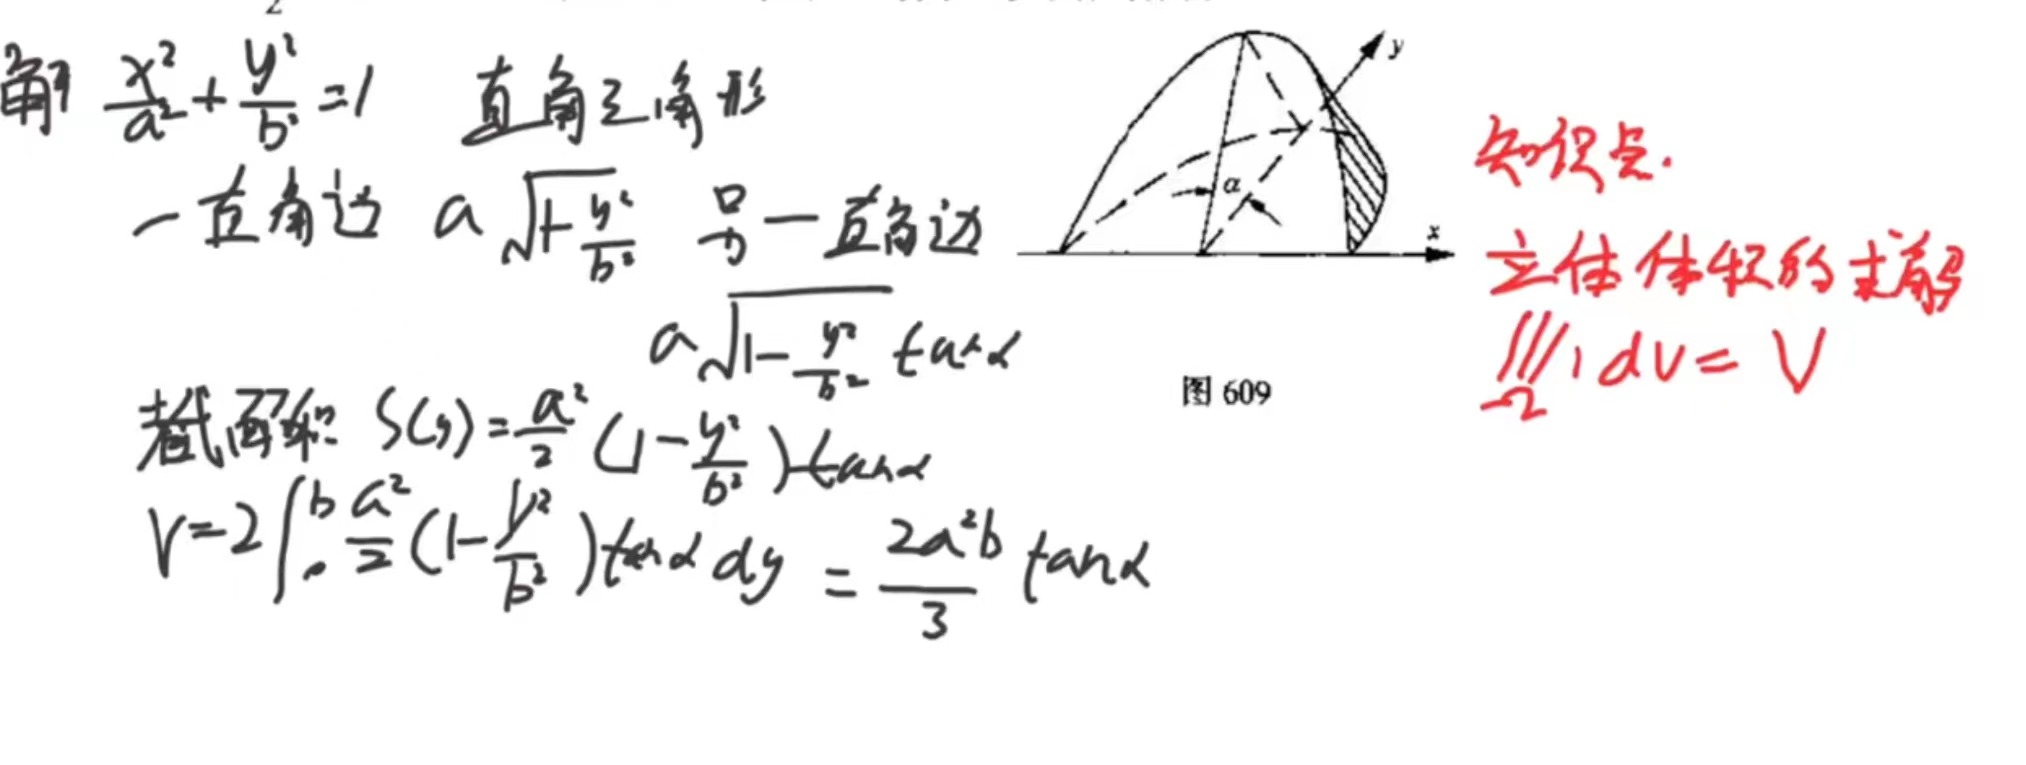 解 x²/a² + y²/b² = 1 直角三角形
一直角边 a√(1-y²/b²) 另一直角边
a√(1-y²/b²) tanα
截面积 S(y) = a²/2 (1-y²/b²) tanα
V = 2∫₀ᵇ a²/2 (1-y²/b²) tanα dy = 2a²b/3 tanα
y
α
x
图 609
知识点.
立体体积的求解
∭_Ω 1 dV = V